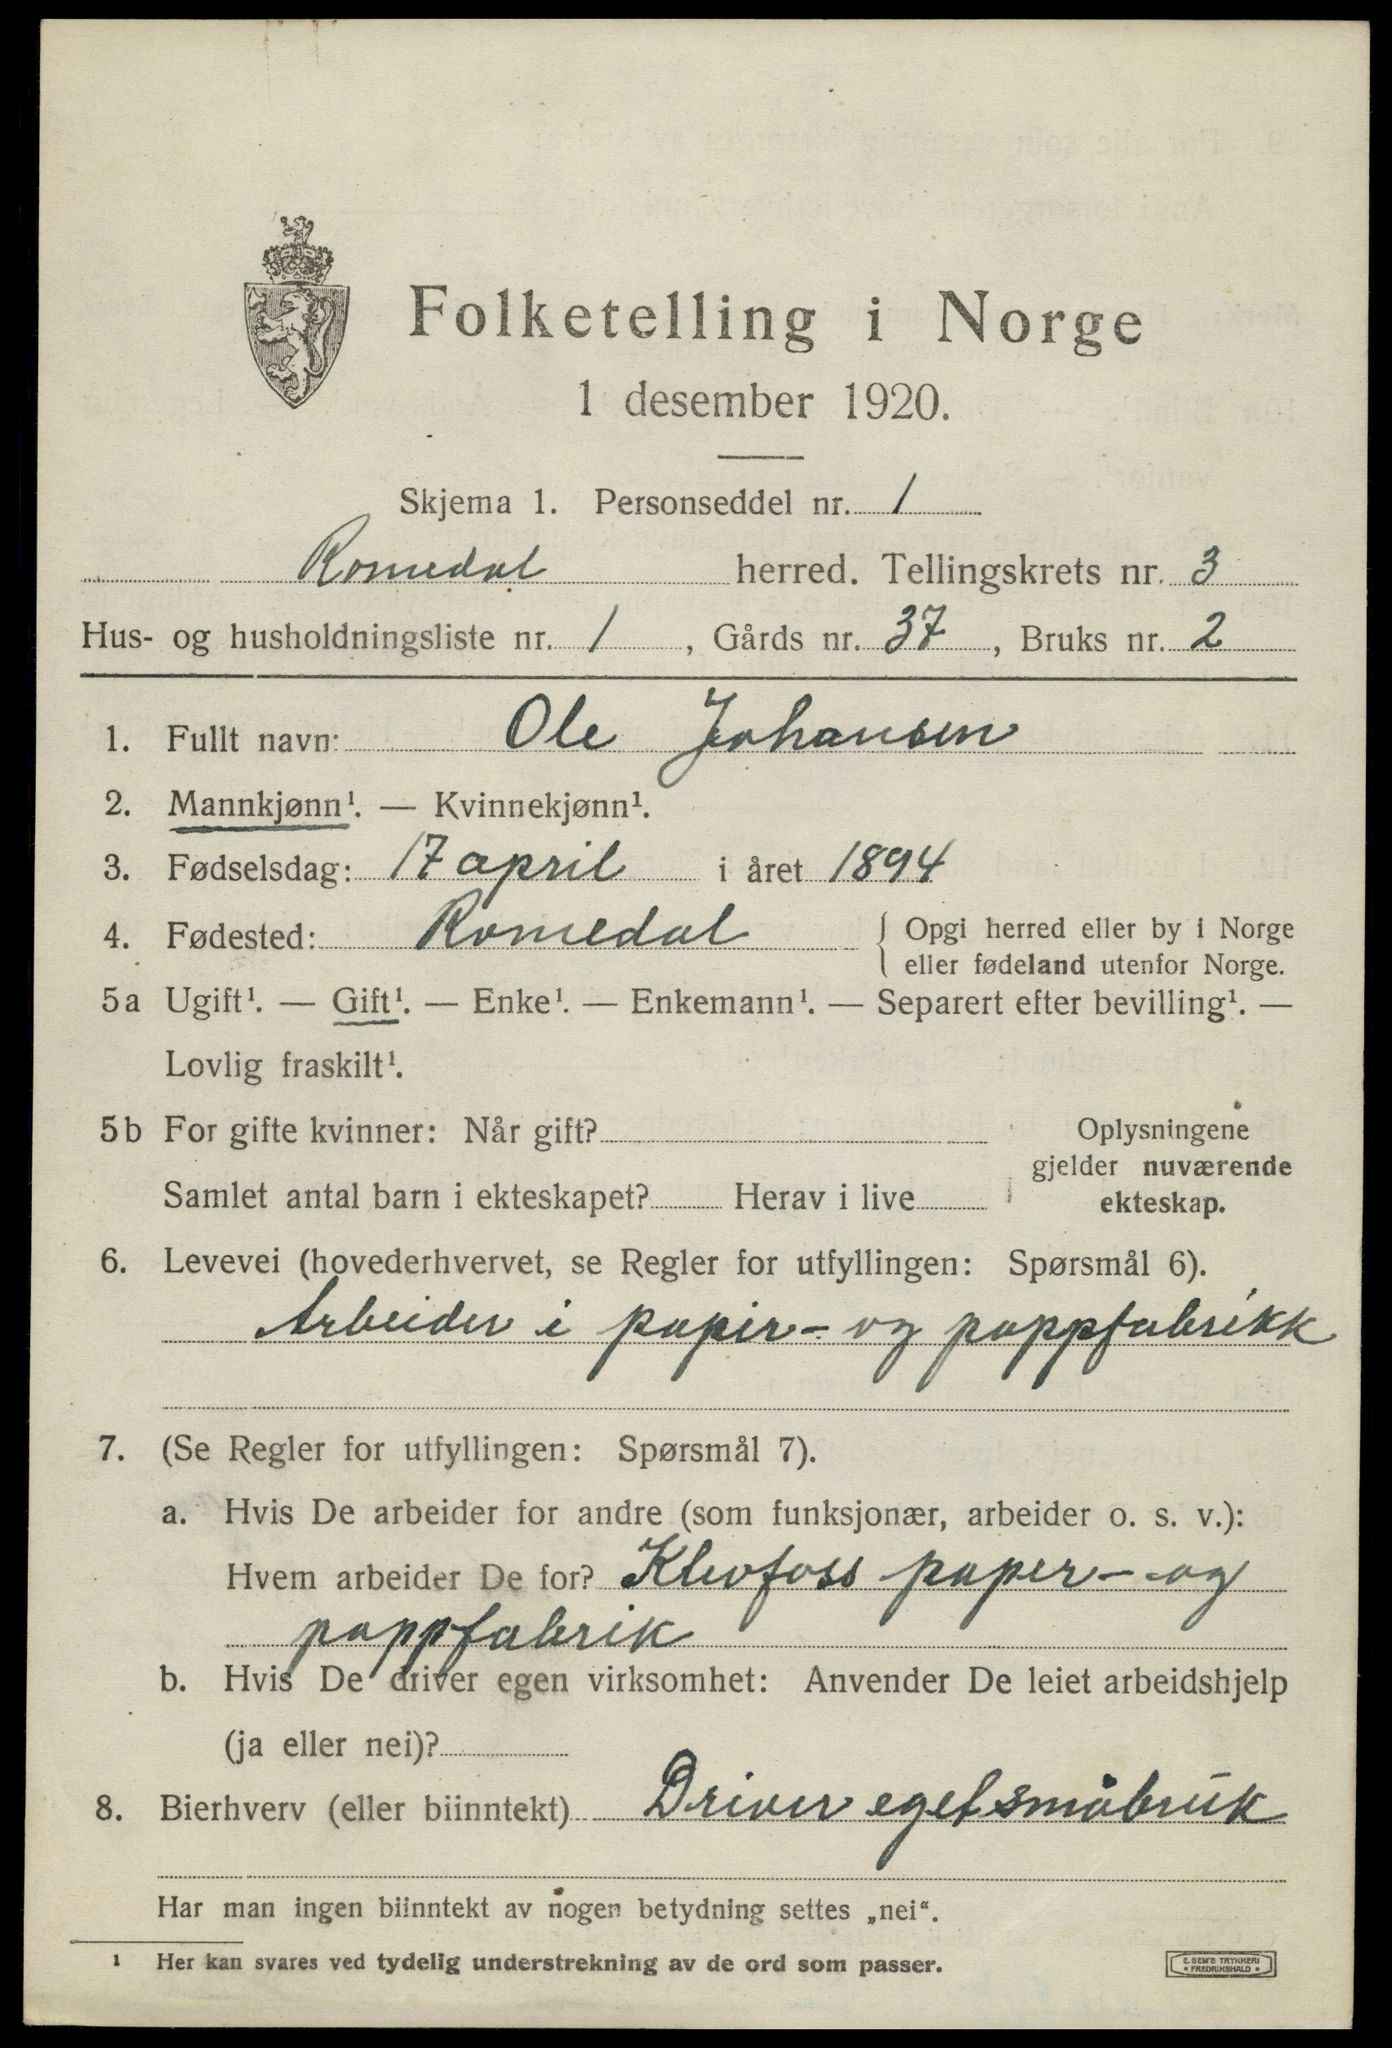 Folketelling i Norge
1 desember 1920.
Skjema 1. Personseddel nr. 1
Romedal herred. Tellingskrets nr. 3
Hus- og husholdningsliste nr. 1, Gårds nr. 37, Bruks nr. 2
1. Fullt navn: Ole Johansen
2. Mannkjønn¹. — Kvinnekjønn¹.
3. Fødselsdag: 17 april i året 1894
4. Fødested: Romedal { Opgi herred eller by i Norge
eller fødeland utenfor Norge.
5a Ugift¹. — Gift¹. — Enke¹. — Enkemann¹. — Separert efter bevilling¹. —
Lovlig fraskilt¹.
5b For gifte kvinner: Når gift?
Samlet antal barn i ekteskapet? Herav i live
Oplysningene
gjelder nuværende
ekteskap.
6. Levevei (hovederhvervet, se Regler for utfyllingen: Spørsmål 6).
Arbeider i papir- og pappfabrikk
7. (Se Regler for utfyllingen: Spørsmål 7).
a. Hvis De arbeider for andre (som funksjonær, arbeider o. s. v.):
Hvem arbeider De for? Klevfoss paper- og
pappfabrik
b. Hvis De driver egen virksomhet: Anvender De leiet arbeidshjelp
(ja eller nei)?
8. Bierhverv (eller biinntekt) Driver eget småbruk
Har man ingen biinntekt av nogen betydning settes „nei“.
¹ Her kan svares ved tydelig understrekning av de ord som passer.
E. SEM'S TRYKKERI
* FREDRIKSHALD *